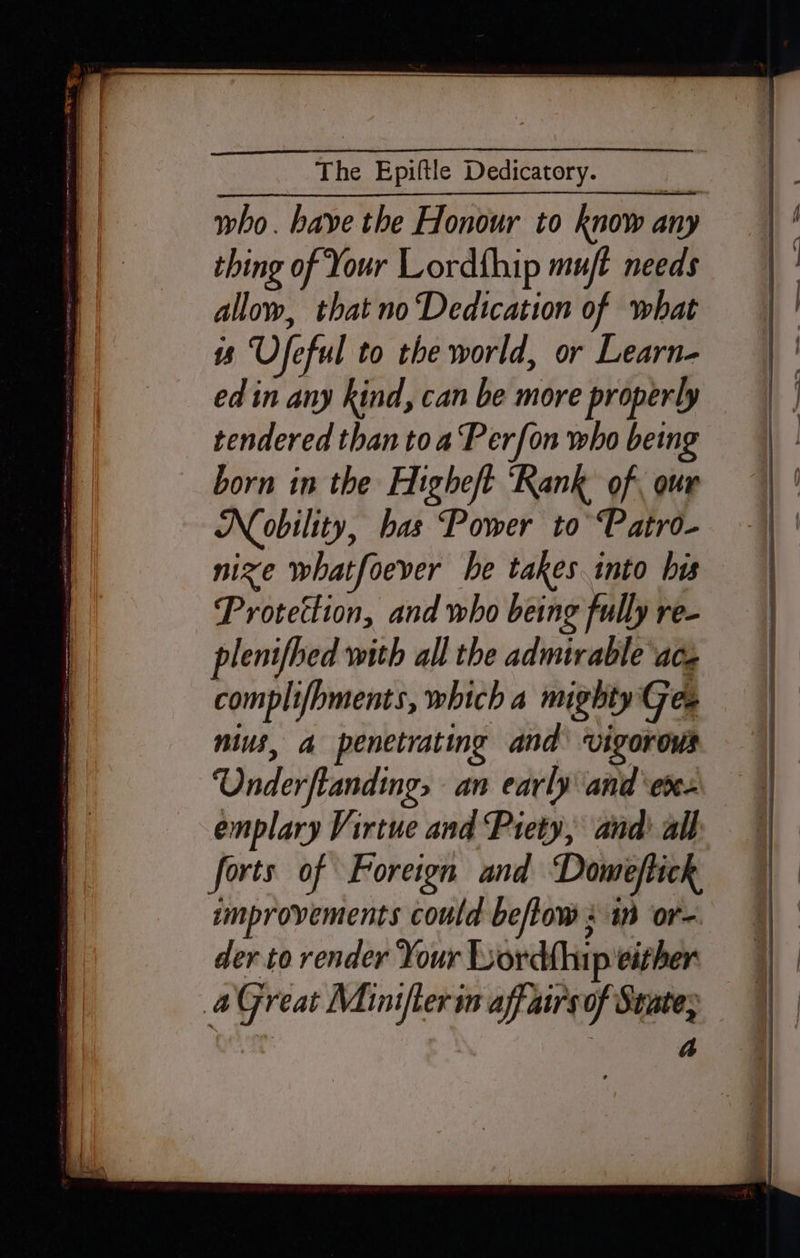 The Epiſtle Dedicatory.
who have the Honour to know any
thing of Your Lordſhip muſt needs
allow, that no Dedication of what
is Uſeful to the world, or Learn-
ed in any kind, can be more properly
tendered than to a Perſon who being
born in the Higheſt Rank of our
Nobility, has Power to Patro-
nize whatſoever he takes into his
Protection, and who being fully re-
pleniſhed with all the admirable ac-
compliſhments, which a mighty Ge-
nius, a penetrating and vigorous
Underſtanding, an early and ex-
emplary Virtue and Piety, and all
ſorts of Foreign and Domeſtick
improvements could beſtow; in or-
der to render Your Lordſhip either
a Great Miniſter in affairs of State;
a